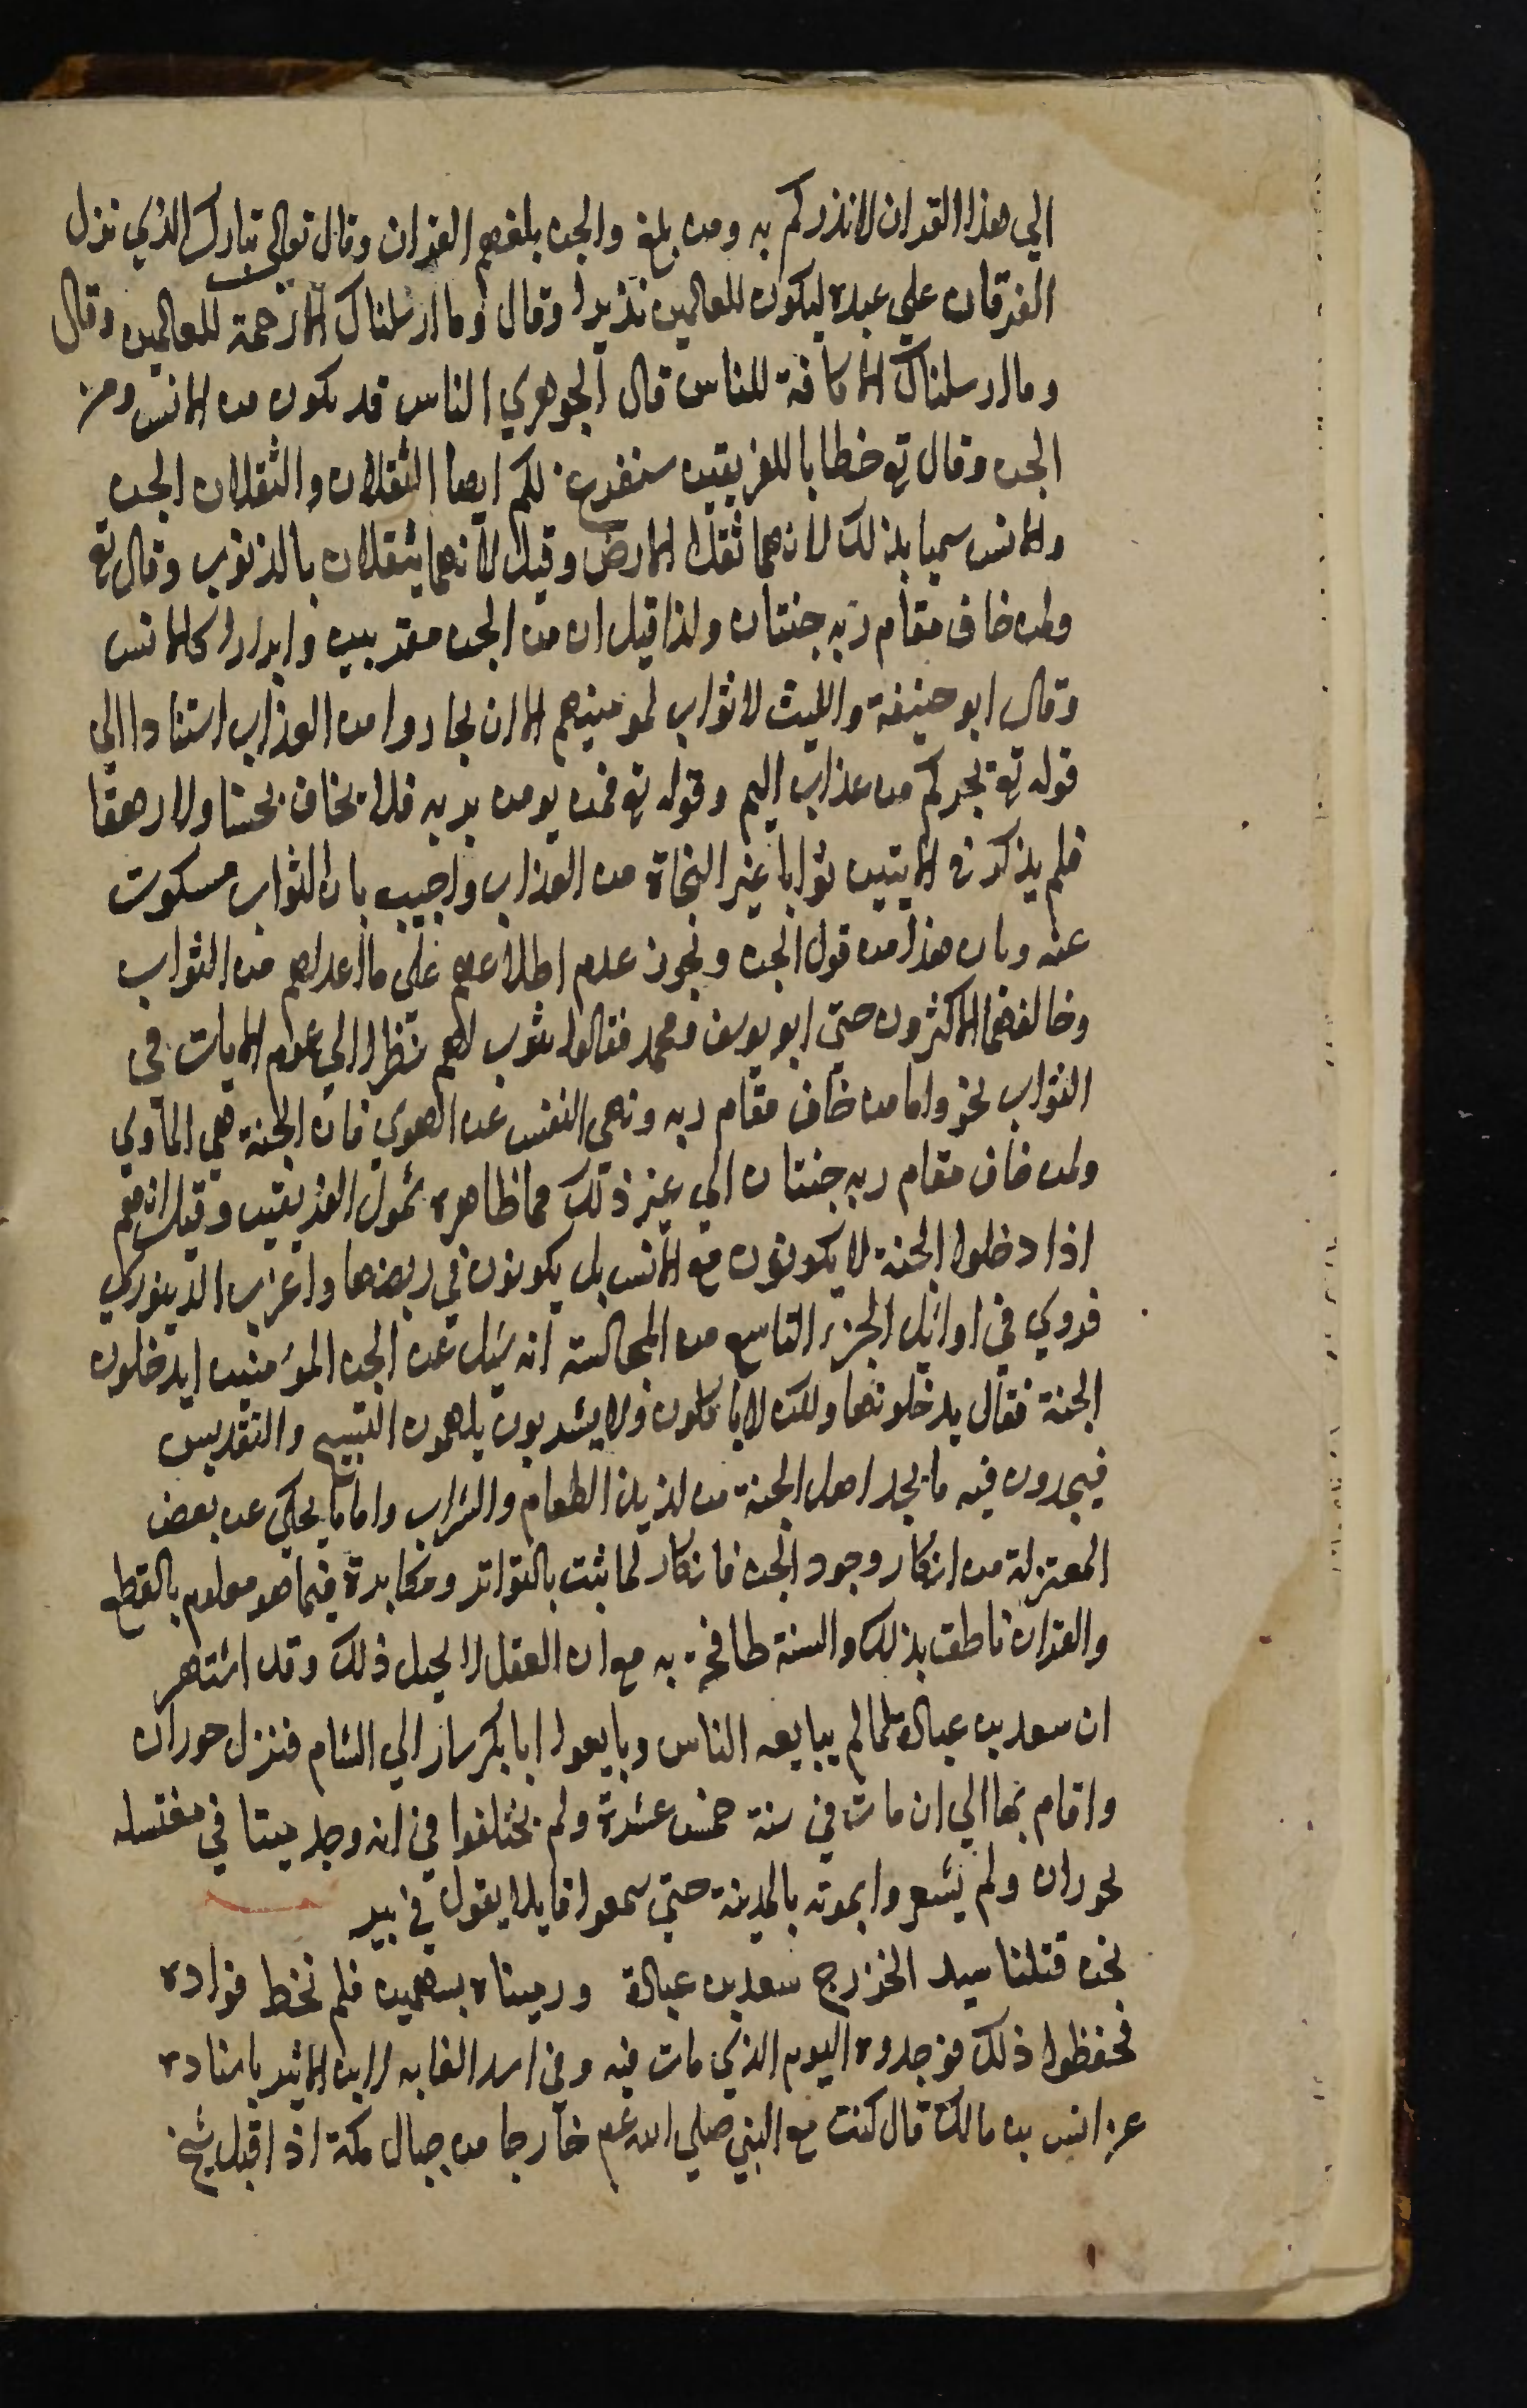 الي هذا القران لانذركم به ومن بلغ والجن بلغهم القران وقال تعالى تبارك الذي نزل
الفرقان علي عبده ليكون للعالمين نذيرا وقال وما ارسلناك الا رحمة للعالمين وقال
وما ارسلناك الا كافة للناس قال الجوهري الناس قد يكون من الانس ومن
الجن وقال تع خطابا للفريقين سنفرغ لكم ايها الثقلان والثقلان الجن
والانس سميا بذلك لانهما ثقلا الارض وقيل لانهما يثقلان بالذنوب وقال تع
ولمن خاف مقام ربه جنتان ولذا قيل ان من الجن مقربين وابرارا كالانس
وقال ابو حنيفة والليث لا ثواب لمومنيهم الا ان يجاروا من العذاب استنادا الي
قوله تع يجركم من عذاب اليم وقوله تع فمن يومن بربه فلا يخاف بخسا ولا رهقا
فلم يذكر في الايتين ثوابا غير النجاة من العذاب واجيب بان الثواب مسكوت
عنه وبان هذا من قول الجن ويجوز عدم اطلاعهم على ما اعد لهم من الثواب
وخالفهما الاكثرون حتي ابو يوسف ومحمد فقالوا بثواب لهم نظرا الي عموم الايات في
الثواب نحو واما من خاف مقام ربه ونهى النفس عن الهوي فان الجنة هي الماوي
ولمن خاف مقام ربه جنتان الي غير ذلك مما ظاهره شمول الفريقين وقيل انهم
اذا دخلوا الجنة لا يكونون مع الانس بل يكونون في ربضها واغرب الدينوري
فروي في اوائل الجزء التاسع من المجالسة انه سئل عن الجن المؤمنين ايدخلون
الجنة فقال يدخلونها ولكن لا ياكلون ولا يشربون يلهمون التسبيح والتقديس
فيجدون فيه ما يجد اهل الجنة من لذيذ الطعام والشراب واما ما يحكى عن بعض
المعتزلة من انكار وجود الجن فانكار لما ثبت بالتواتر ومكابرة فيما هو معلوم بالقطع
والقران ناطق بذلك والسنة طافحة به مع ان العقل لا يحيل ذلك وقد اشتهر
ان سعد بن عبادة لما لم يبايعه الناس وبايعوا ابا بكر سار الي الشام فنزل حوران
واقام بها الي ان مات في سنة خمس عشرة ولم يختلفوا في انه وجد ميتا في مغتسله
بحوران ولم يشعروا بموته بالمدينة حتي سمعوا قايلا يقول في بير
نحن قتلنا سيد الخزرج سعد بن عبادة ورميناه بسهمين فلم نخط فواده
فحفظوا ذلك فوجدوه اليوم الذي مات فيه وفي اسد الغابه لابن الاثير باسناده
عن انس بن مالك قال كنت مع النبي صلي الله عم خارجا من جبال مكة اذ اقبل شيخ